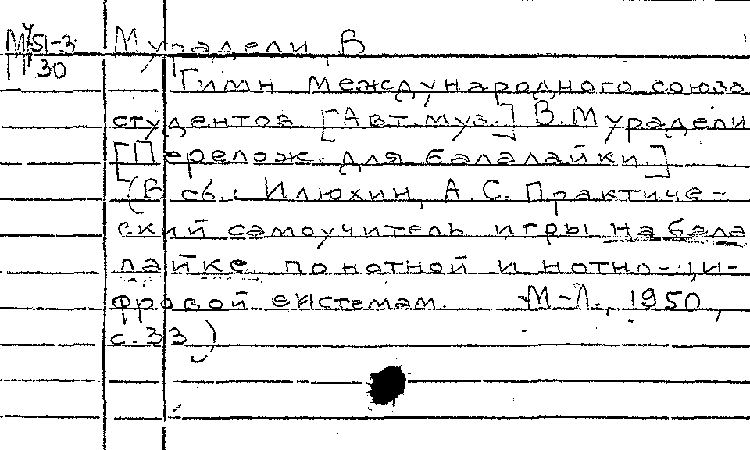 М 51-3 Мурадели, В
30 Гимн международного союза
студентов [Авт.муз.] В.Мурадели
[Перелож. для балалайки.]
(В сб.: Илюхин, А.С. Практиче-
ский самоучитель игры на бала
лайке по нотной и нотно-ци-
фровой системам. М-Л., 1950,
с.33.)